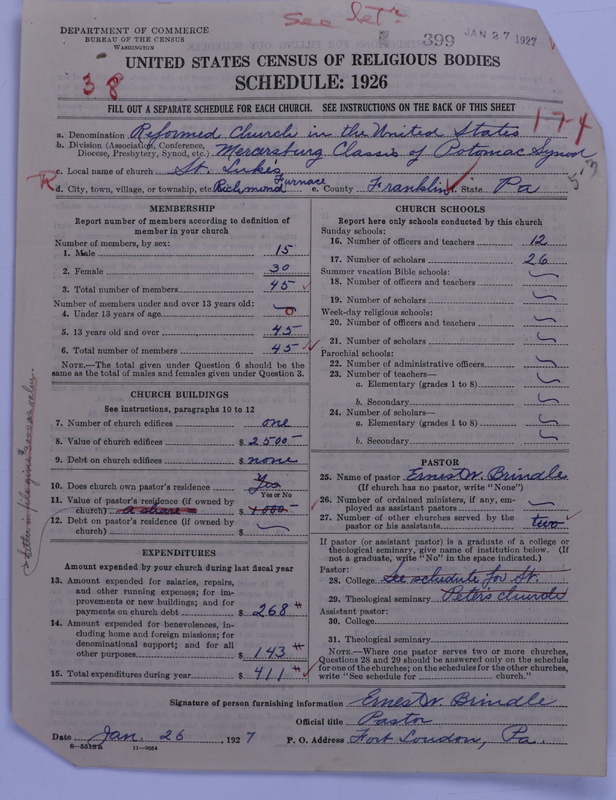 See let'r
DEPARTMENT OF COMMERCE
BUREAU OF THE CENSUS
WASHINGTON
399 JAN 27 1927
UNITED STATES CENSUS OF RELIGIOUS BODIES
SCHEDULE: 1926
38
FILL OUT A SEPARATE SCHEDULE FOR EACH CHURCH. SEE INSTRUCTIONS ON THE BACK OF THIS SHEET
174
a. Denomination Reformed Church in the United States
b. Division (Association, Conference, Diocese, Presbytery, Synod, etc.) Mercersburg Classis of Potomac Synod
c. Local name of church St. Luke's
d. City, town, village, or township, etc. Richmond Furnace e. County Franklin f. State Pa
MEMBERSHIP
Report number of members according to definition of
member in your church
Number of members, by sex:
1. Male 15
2. Female 30
3. Total number of members 45
Number of members under and over 13 years old:
4. Under 13 years of age 0
5. 13 years old and over 45
6. Total number of members 45
NOTE.—The total given under Question 6 should be
same as the total of males and females given under Question 3.
CHURCH BUILDINGS
See instructions, paragraphs 10 to 12
7. Number of church edifices one
8. Value of church edifices $ 2500
9. Debt on church edifices $ none
10. Does church own pastor's residence Yes
Yes or No
11. Value of pastor's residence (if owned by
church) a share $ 1000
12. Debt on pastor's residence (if owned by
church) $
EXPENDITURES
Amount expended by your church during last fiscal year
13. Amount expended for salaries, repairs,
and other running expenses; for im-
provements or new buildings; and for
payments on church debt $ 268
14. Amount expended for benevolences, in-
cluding home and foreign missions; for
denominational support; and for all
other purposes $ 143
15. Total expenditures during year $ 411
CHURCH SCHOOLS
Report here only schools conducted by this church
Sunday schools:
16. Number of officers and teachers 12
17. Number of scholars 26
Summer vacation Bible schools:
18. Number of officers and teachers
19. Number of scholars
Week-day religious schools:
20. Number of officers and teachers
21. Number of scholars
Parochial schools:
22. Number of administrative officers
23. Number of teachers—
a. Elementary (grades 1 to 8)
b. Secondary
24. Number of scholars—
a. Elementary (grades 1 to 8)
b. Secondary
PASTOR
25. Name of pastor Ernest W. Brindle
(If church has no pastor, write "None")
26. Number of ordained ministers, if any, em-
ployed as assistant pastors
27. Number of other churches served by the
pastor or his assistants two
If pastor (or assistant pastor) is a graduate of a college or
theological seminary, give name of institution below. (If
not a graduate, write "No" in the space indicated.)
Pastor:
28. College See schedule for St.
29. Theological seminary Peters church
Assistant pastor:
30. College
31. Theological seminary
NOTE.—Where one pastor serves two or more churches,
Questions 28 and 29 should be answered only on the schedule
for one of the churches; on the schedules for the other churches,
write "See schedule for church."
Signature of person furnishing information Ernest W. Brindle
Official title Pastor
Date Jan. 26, 1927 P. O. Address Fort Loudon, Pa.
8—5519a 11—9054